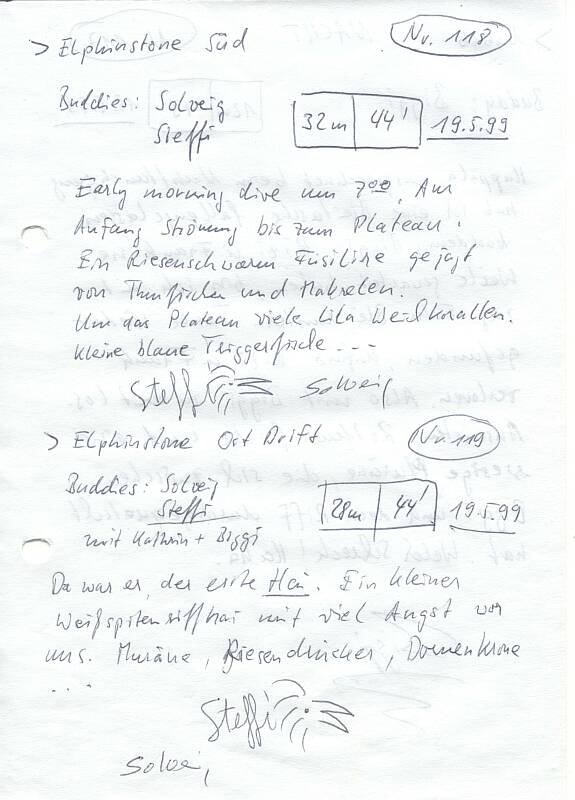 > Elphinstone Süd
Nr. 118
Buddies: Solveig
Steffi
32m 44' 19.5.99
Early morning dive um 7⁰⁰. Am
Anfang Strömung bis zum Plateau.
Ein Riesenschwarm Füsiliere gejagt
von Thunfischen und Makrelen.
Um das Plateau viele lila Weichkorallen.
Kleine blaue Triggerfische ...
Steffi Solveig
> Elphinstone Ost Drift
Nr. 119
Buddies: Solveig
Steffi
mit Kathrin + Biggi
28m 44' 19.5.99
Da war er, der erste Hai. Ein kleiner
Weißspitenriffhai mit viel Angst vor
uns. Muräne, Riesendrücker, Dornenkrone
....
Steffi
Solveig